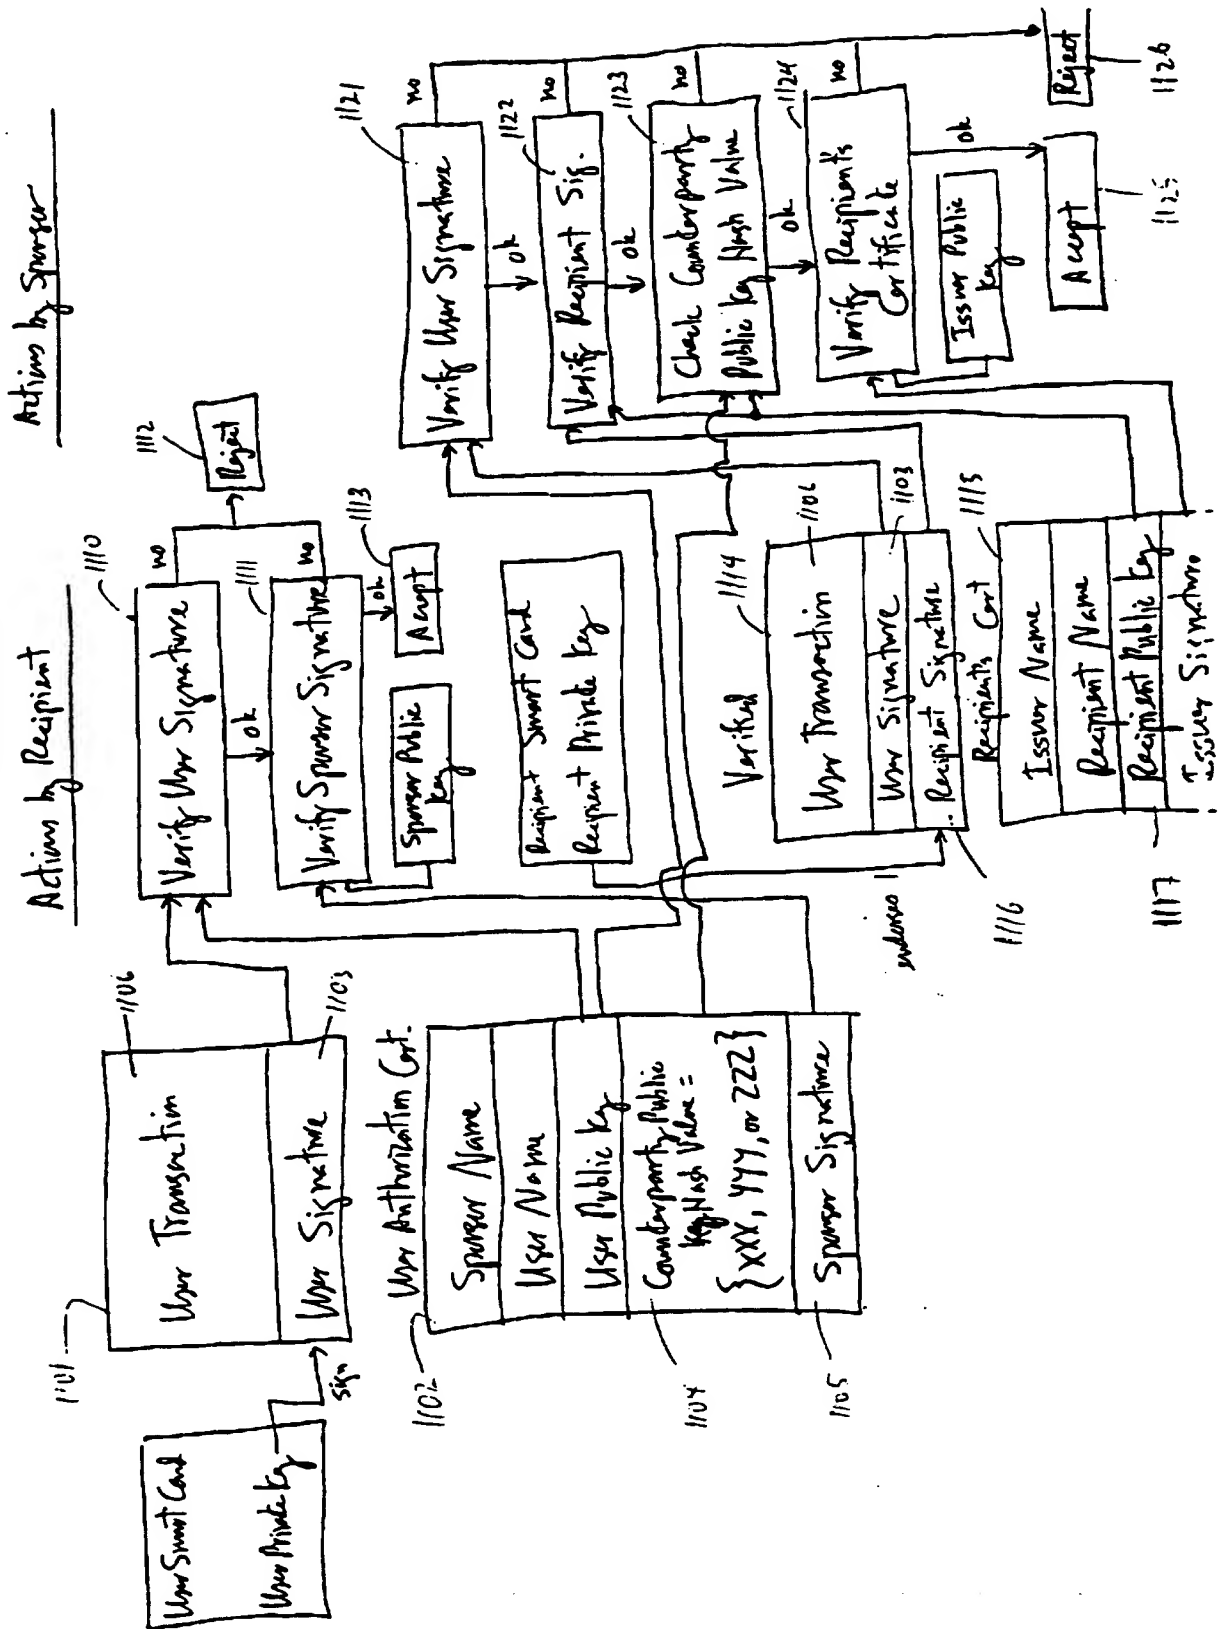 Actions by Recipient
Actions by Sponsor
User Smart Card
User Private Key
sign
1101
User Transaction
1106
User Signature
1103
User Authorization Cert.
1102
Sponsor Name
User Name
User Public Key
Counterparty Public
Key Hash Value =
{XXX, YYY, or ZZZ}
1104
Sponsor Signature
1105
1110
Verify User Signature
no
ok
1111
Verify Sponsor Signature
no
ok
1112
Reject
1113
Accept
Sponsor Public
Key
Recipient Smart Card
Recipient Private Key
endorses
Verified
1114
User Transaction
1106
User Signature
1103
Recipient Signature
1116
Recipient's Cert
1115
Issuer Name
Recipient Name
Recipient Public Key
1117
Issuer Signature
1121
Verify User Signature
no
ok
1122
Verify Recipient Sig.
no
ok
1123
Check Counterparty
Public Key Hash Value
no
ok
1124
Verify Recipient's
Certificate
no
ok
Issuer Public
Key
Accept
1125
Reject
1126